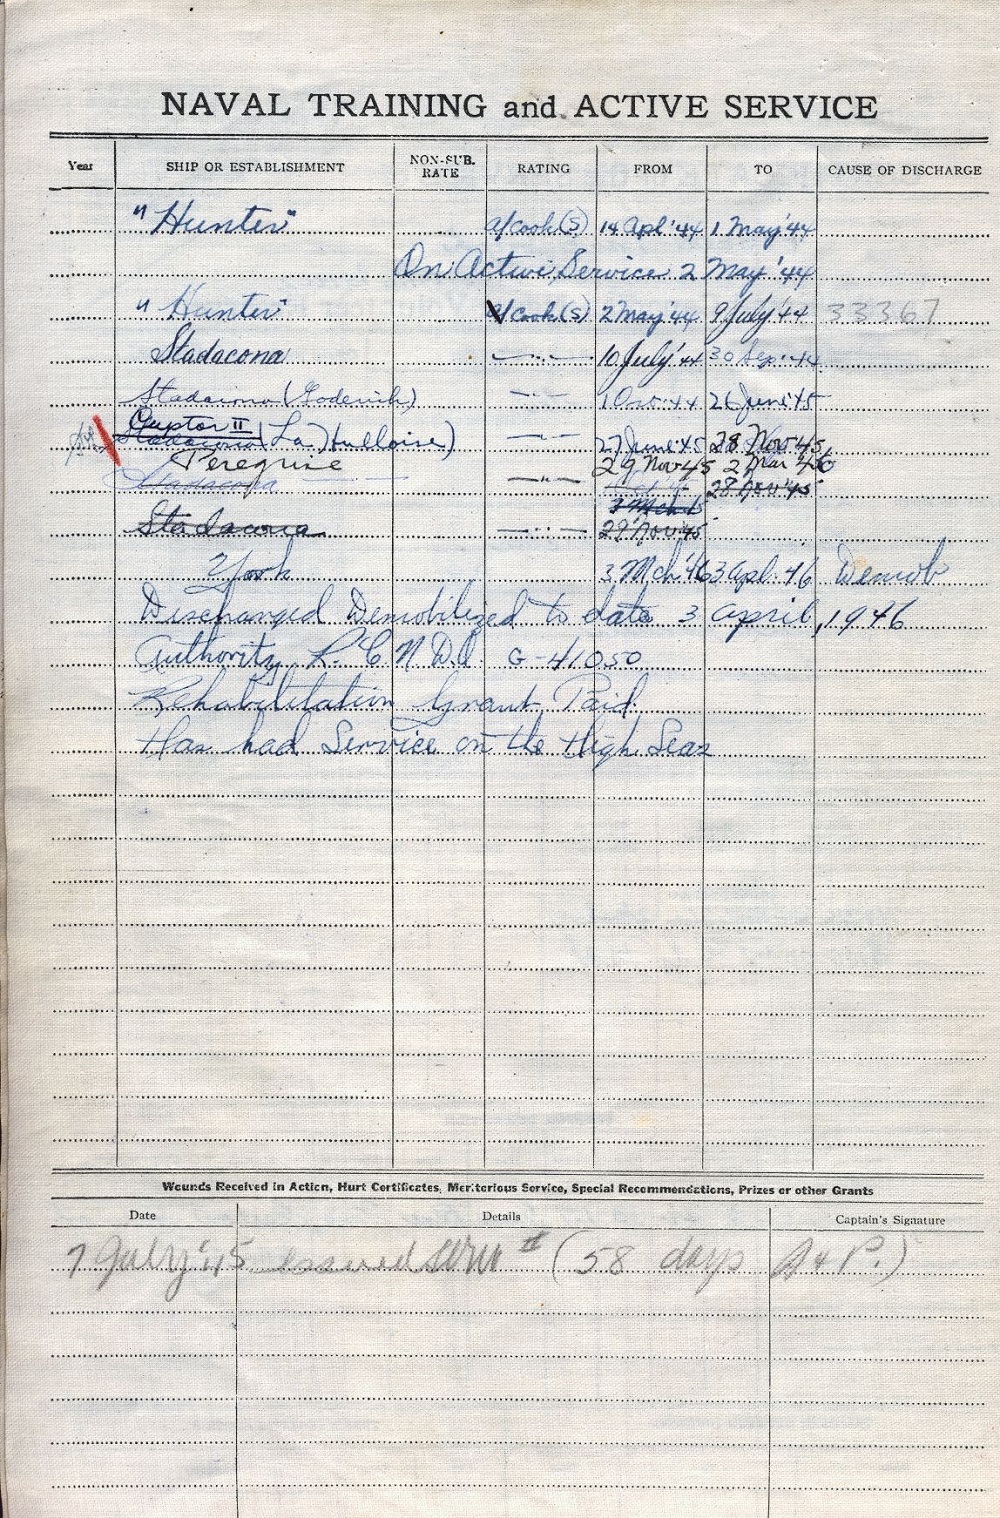 NAVAL TRAINING and ACTIVE SERVICE
Year SHIP OR ESTABLISHMENT NON-SUB. RATE RATING FROM TO CAUSE OF DISCHARGE
"Hunter" a/cook(S) 14 Apl '44 1 May '44
On Active Service 2 May '44
"Hunter" a/cook(S) 2 May '44 9 July '44 33367
Stadacona —··— 10 July '44 30 Sep. 44
Stadacona (Goderich) —··— 1 Oct. 44 26 June '45
II
Stadacona (La Hulloise) —··— 27 June '45 28 Nov 45
Peregrine 29 Nov 45 2 Mar '46
Stadacona —··— 28 Nov '45
3 Mch
Stadacona —··— 29 Nov '45
York 3 Mch '46 3 Apl. 46 Demob
Discharged Demobilized to date 3 April, 1946
Authority G-41050
Rehabilitation Grant Paid.
Has had Service on the High Seas
Wounds Received in Action, Hurt Certificates, Meritorious Service, Special Recommendations, Prizes or other Grants
Date Details Captain's Signature
7 July '45 issued # (58 days A & P.)